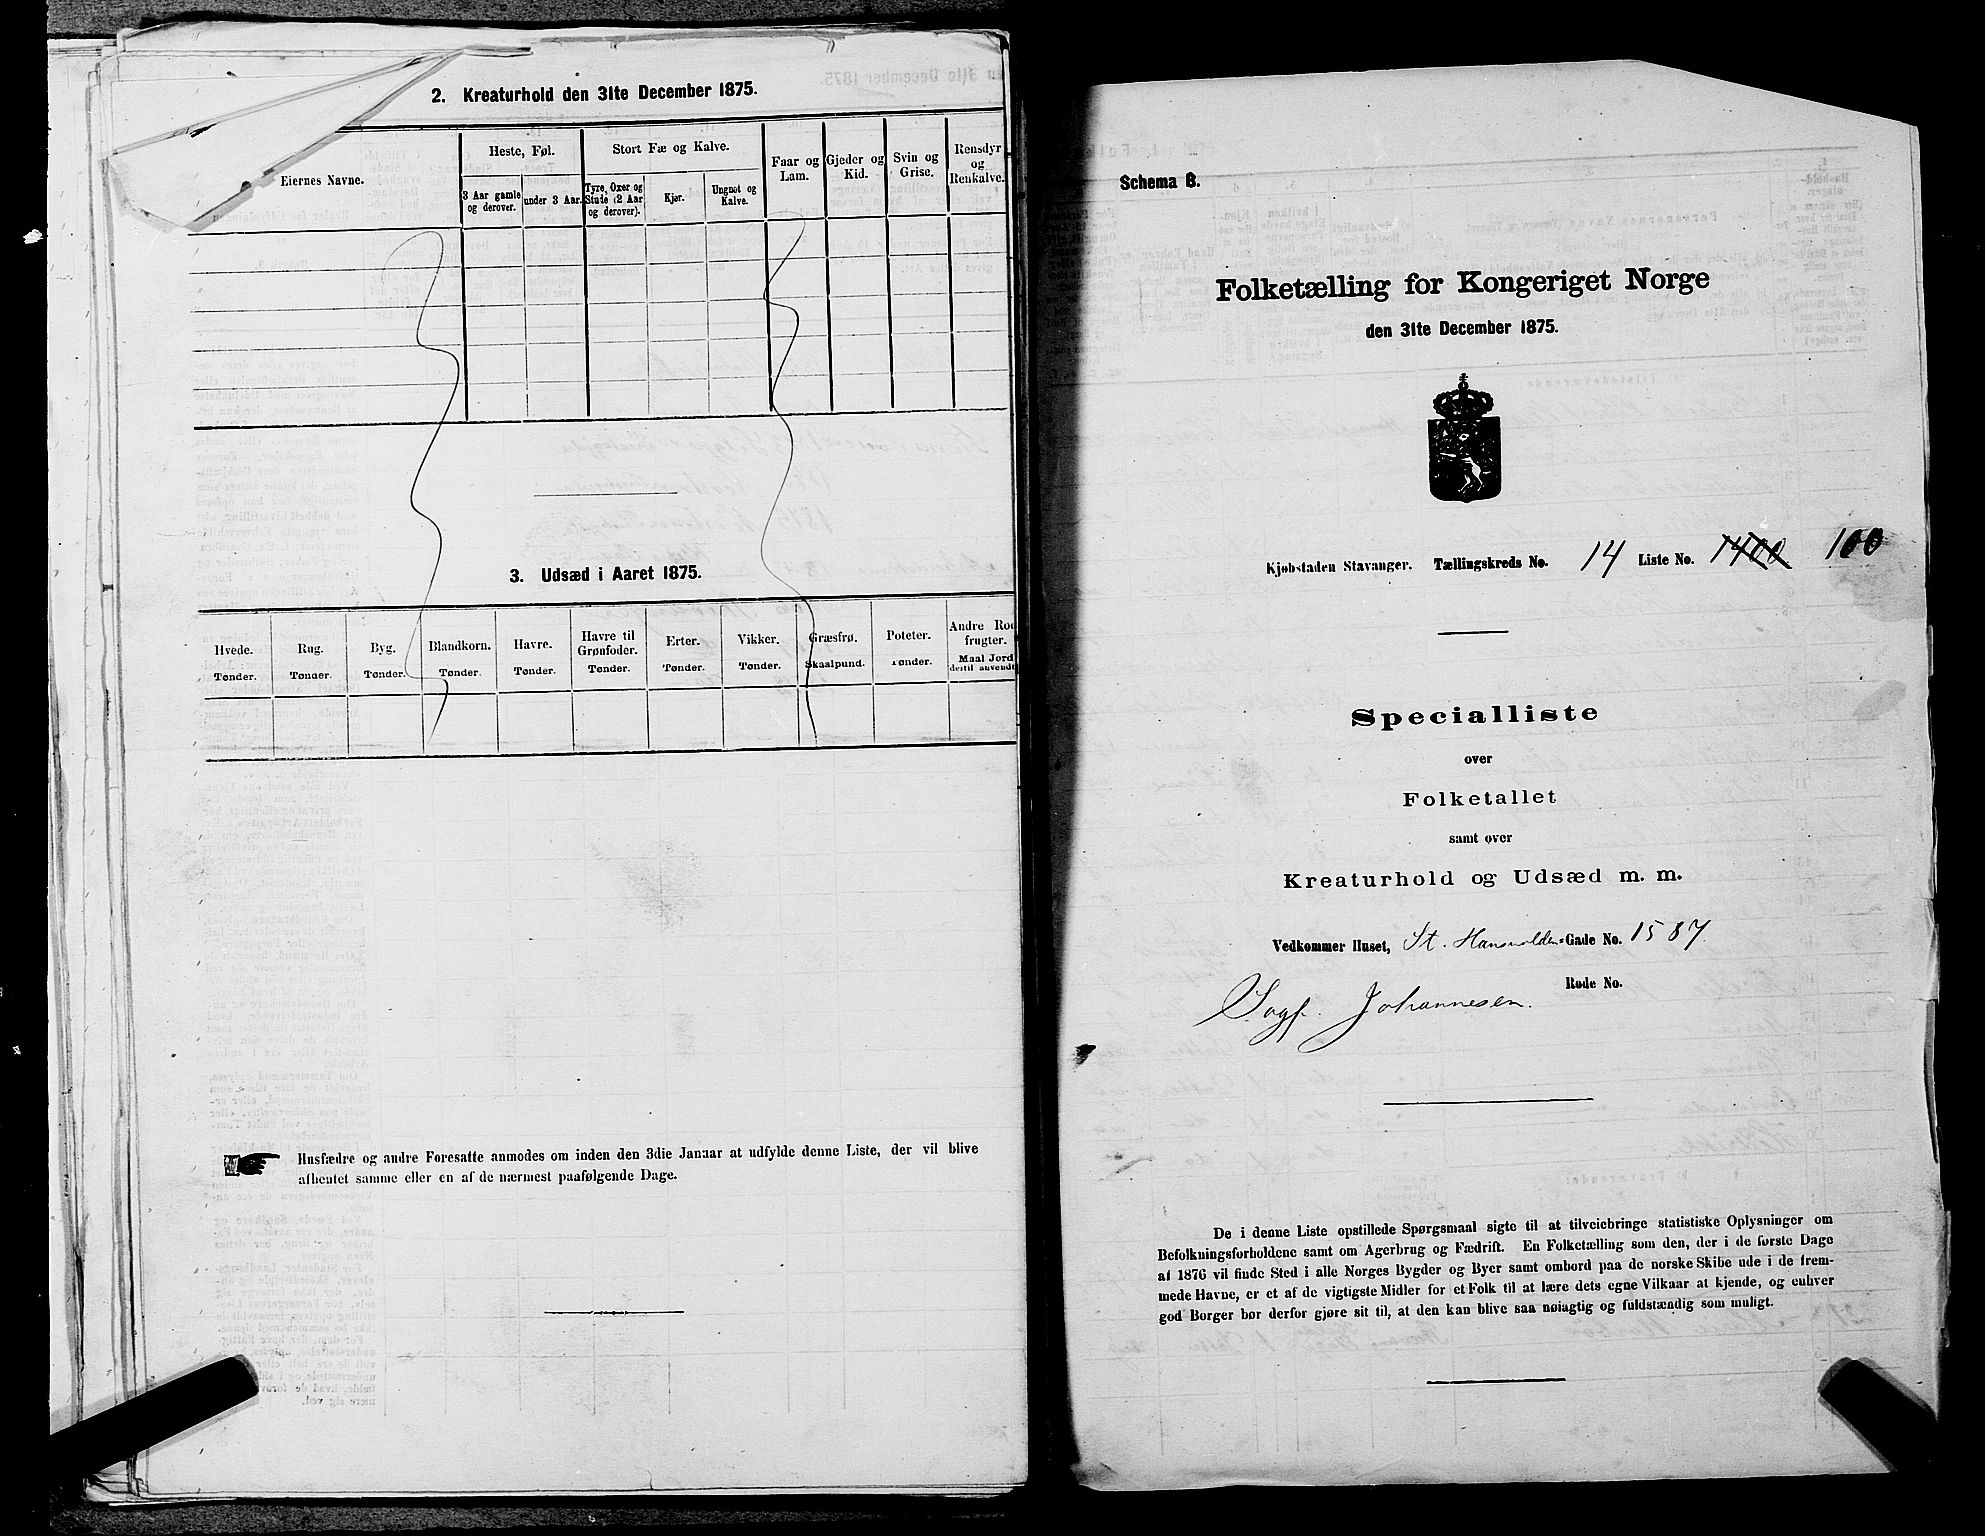 2. Kreaturhold den 31te December 1875.
Eiernes Navne.
Heste, Føl.
Stort Fæ og Kalve.
Faar og Lam.
Gjeder og Kid.
Svin og Grise.
Rensdyr og Renkalve.
3 Aar gamle og derover.
under 3 Aar.
Tyre, Oxer og Stude (2 Aar og derover).
Kjør.
Ungnøt og Kalve.
3. Udsæd i Aaret 1875.
Hvede.
Rug.
Byg.
Blandkorn.
Havre.
Havre til Grønfoder.
Erter.
Vikker.
Græsfrø.
Poteter.
Andre Rod
frugter.
Tønder.
Tønder.
Tønder.
Tønder.
Tønder.
Tønder.
Tønder.
Tønder.
Skaalpund.
Tønder.
Maal Jord
dertil anvendt
Husfædre og andre Foresatte anmodes om inden den 3die Januar at udfylde denne Liste, der vil blive
afhentet samme eller en af de nærmest paafølgende Dage.
Schema B.
Folketælling for Kongeriget Norge
den 31te December 1875.
Kjøbstaden Stavanger. Tællingskreds No. 14 Liste No. 1400 100
Specialliste
over
Folketallet
samt over
Kreaturhold og Udsæd m. m.
Vedkommer Huset, St. Hansvolden Gade No. 1587.
Rode No.
Sagf. Johannesen.
De i denne Liste opstillede Spørgsmaal sigte til at tilveiebringe statistiske Oplysninger om
Befolkningsforholdene samt om Agerbrug og Fædrift. En Folketælling som den, der i de første Dage
af 1876 vil finde Sted i alle Norges Bygder og Byer samt ombord paa de norske Skibe ude i de frem-
mede Havne, er et af de vigtigste Midler for et Folk til at lære dets egne Vilkaar at kjende, og enhver
god Borger bør derfor gjøre sit til, at den kan blive saa nøiagtig og fuldstændig som muligt.